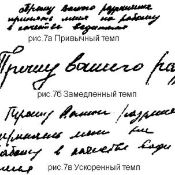 Прошу вашего разрешения
принять меня на работу
в качестве водителя
рис.7а Привычный темп
Прошу вашего раз
рис.7б Замедленный темп
Прошу Вашего разреше
принять меня на
работу в качестве води
рис.7в Ускоренный темп